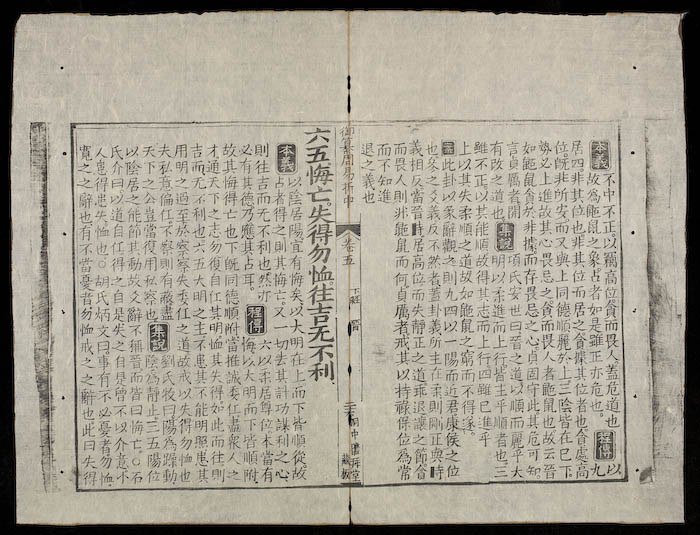 本義 不中不正。以竊高位貪而畏人。蓋危道也。
故爲鼫鼠之象占者如是雖正亦危也。 程傳 以九
居四非其位也非其位而居之貪據其位者也貪處高
位。既非所安而又與上同德順麗於上三陰皆在己下
勢必上進故其心畏忌之貪而畏人者鼫鼠也故云晉
如鼫鼠貪於非據而存畏忌之心貞固守此其危可知。
言貞厲者開有改之道也。 集說 項氏安世曰晉之道以順而麗乎大
明以柔進而上行皆主乎順者也三
雖不正以其能順故得其志而上行四雖已進乎
上以其失柔順之道故如鼫鼠之窮而不得遂。
案 此卦以彖辭觀之則九四以一陽而近君康侯之位
也參之爻義反不然者蓋卦義所主在柔則剛正與時
義相反當晉時居高位而失靜正之道乖退讓之節貪
而畏人則非鼫鼠而何貞厲者戒其以持祿保位爲常
而不知進
退之義也
御纂周易折中 卷五 下經 晉
六五悔亡。失得勿恤。往吉无不利。
本義 以陰居陽宜有悔矣以大明在上而下皆順從故
占者得之則其悔亡又一切去其計功謀利之心
則往吉而无不利也然亦必有其德乃應其占耳。 程傳 六以柔居尊位本當有
悔以大明而下皆順附
故其悔得亡也下既同德順附當推誠委任盡衆人之
才通天下之志勿復自任其明恤其失得如此而往則
吉而无不利也六五大明之主不患其不能明照患其
用明之過至於察察失委任之道故戒以失得勿恤也
夫私意偏任不察則有蔽盡天下之公豈當復用私察也 集說 劉氏牧曰陽爲躁動
陰爲靜止三五陽位
以陰居之能節其動故爻辭不稱晉而皆曰悔亡。○石
氏介曰以道自任得之自是失之自是曾不以介意小
人患得患失恤也。○胡氏炳文曰事有不必憂者勿恤
寬之之辭也有不當憂者勿恤戒之之辭也此曰失得